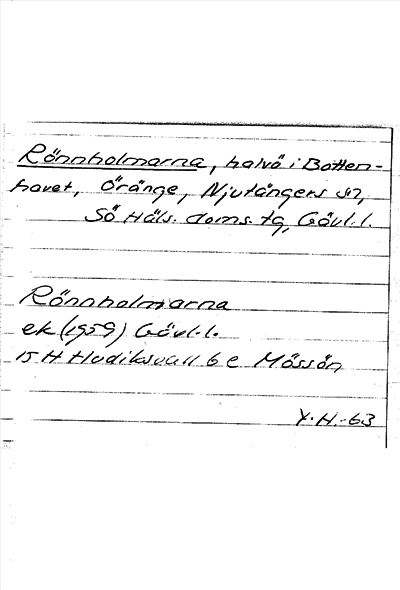 Rönnholmarna, halvö i Botten-
havet, Öränge, Njutångers sn,
Sö Häls. doms. tg, Gävl.l.
Rönnholmarna
ek (1959) Gävl.l.
15 H Hudiksvall 6 e Mössön
Y.H.-63